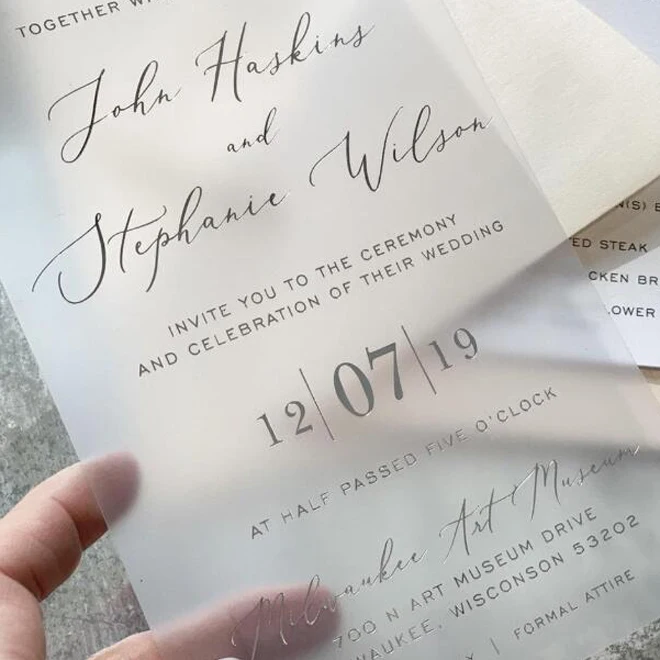 TOGETHER
John Haskins
and
Stephanie Wilson
INVITE YOU TO THE CEREMONY
AND CELEBRATION OF THEIR WEDDING
12|07|19
AT HALF PASSED FIVE O'CLOCK
Milwaukee Art Museum
700 N ART MUSEUM DRIVE
WAUKEE, WISCONSON 53202
| FORMAL ATTIRE
N(S) B
ED STEAK
CKEN BR
LOWER